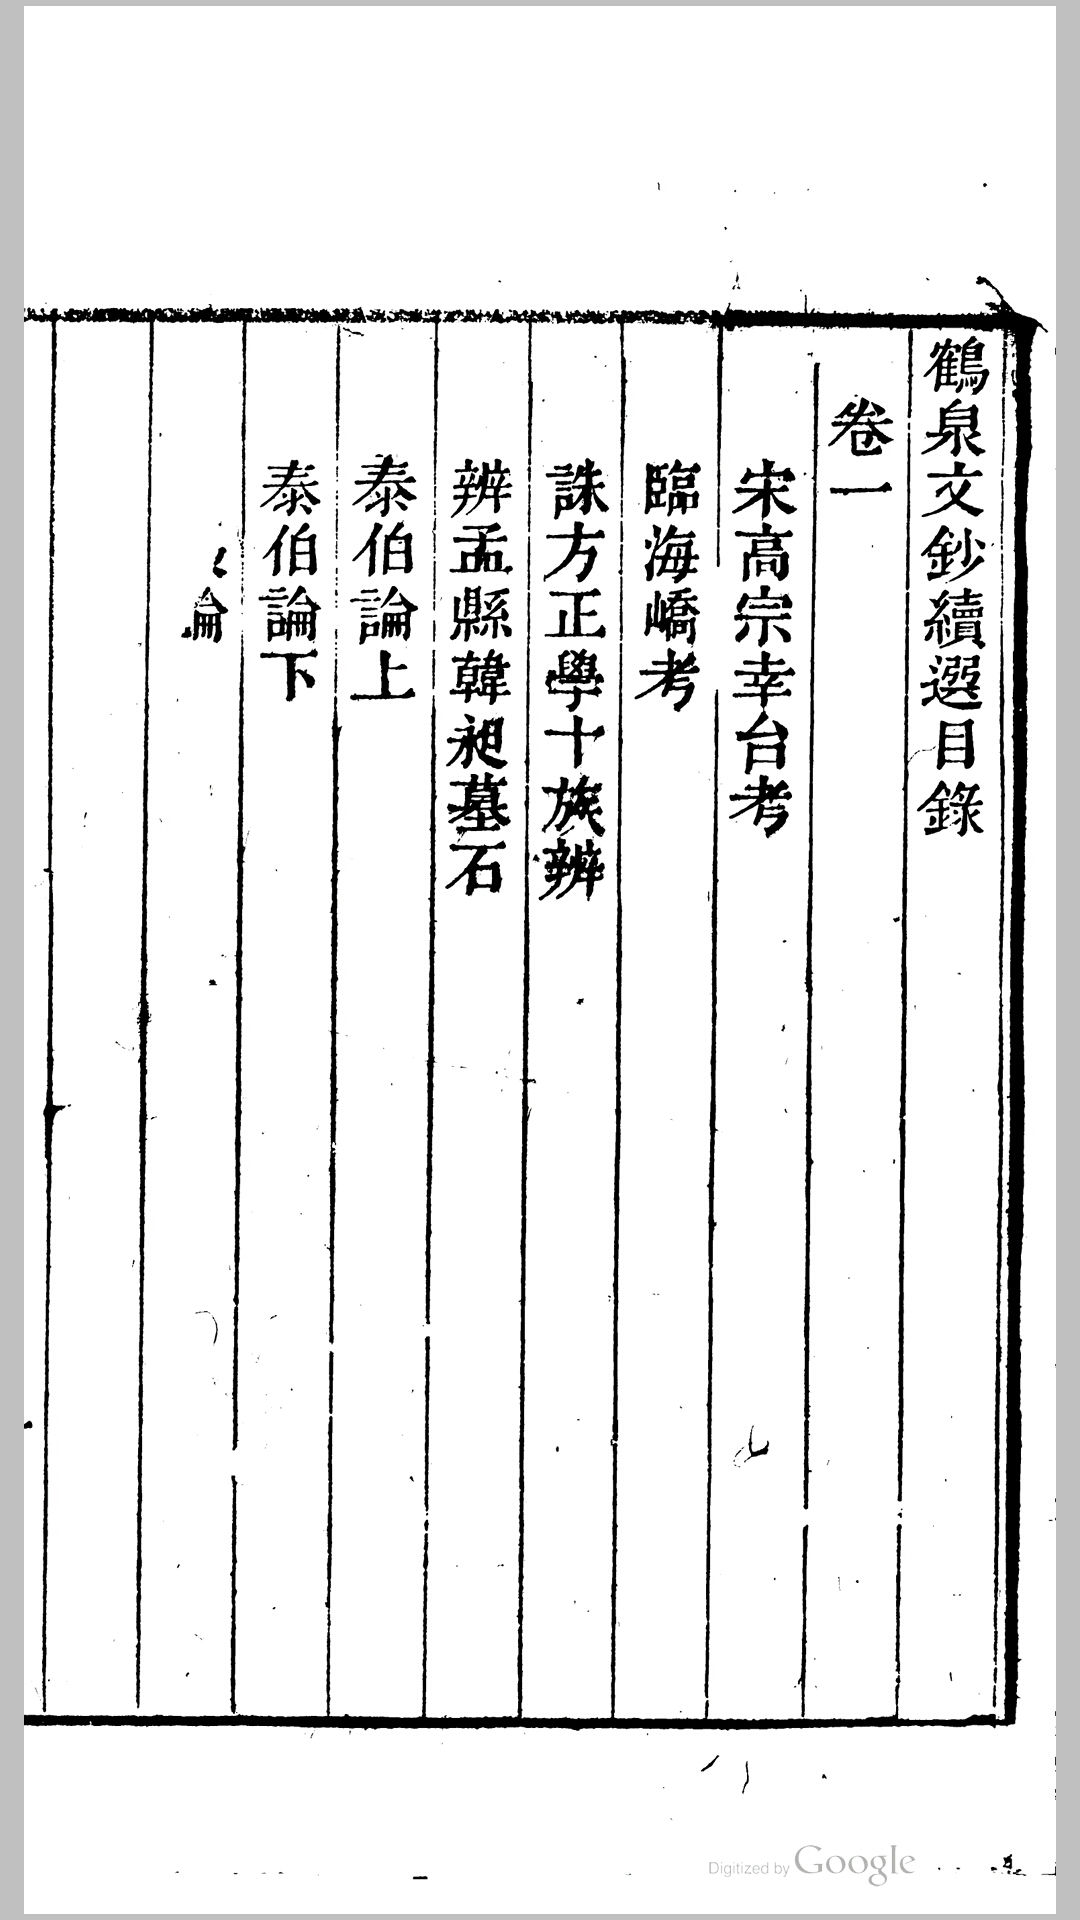 鶴泉文鈔續選目錄
卷一
宋高宗幸台考
臨海嶠考
誅方正學十族辨
辨孟縣韓昶墓石
泰伯論上
泰伯論下
論
Digitized by Google